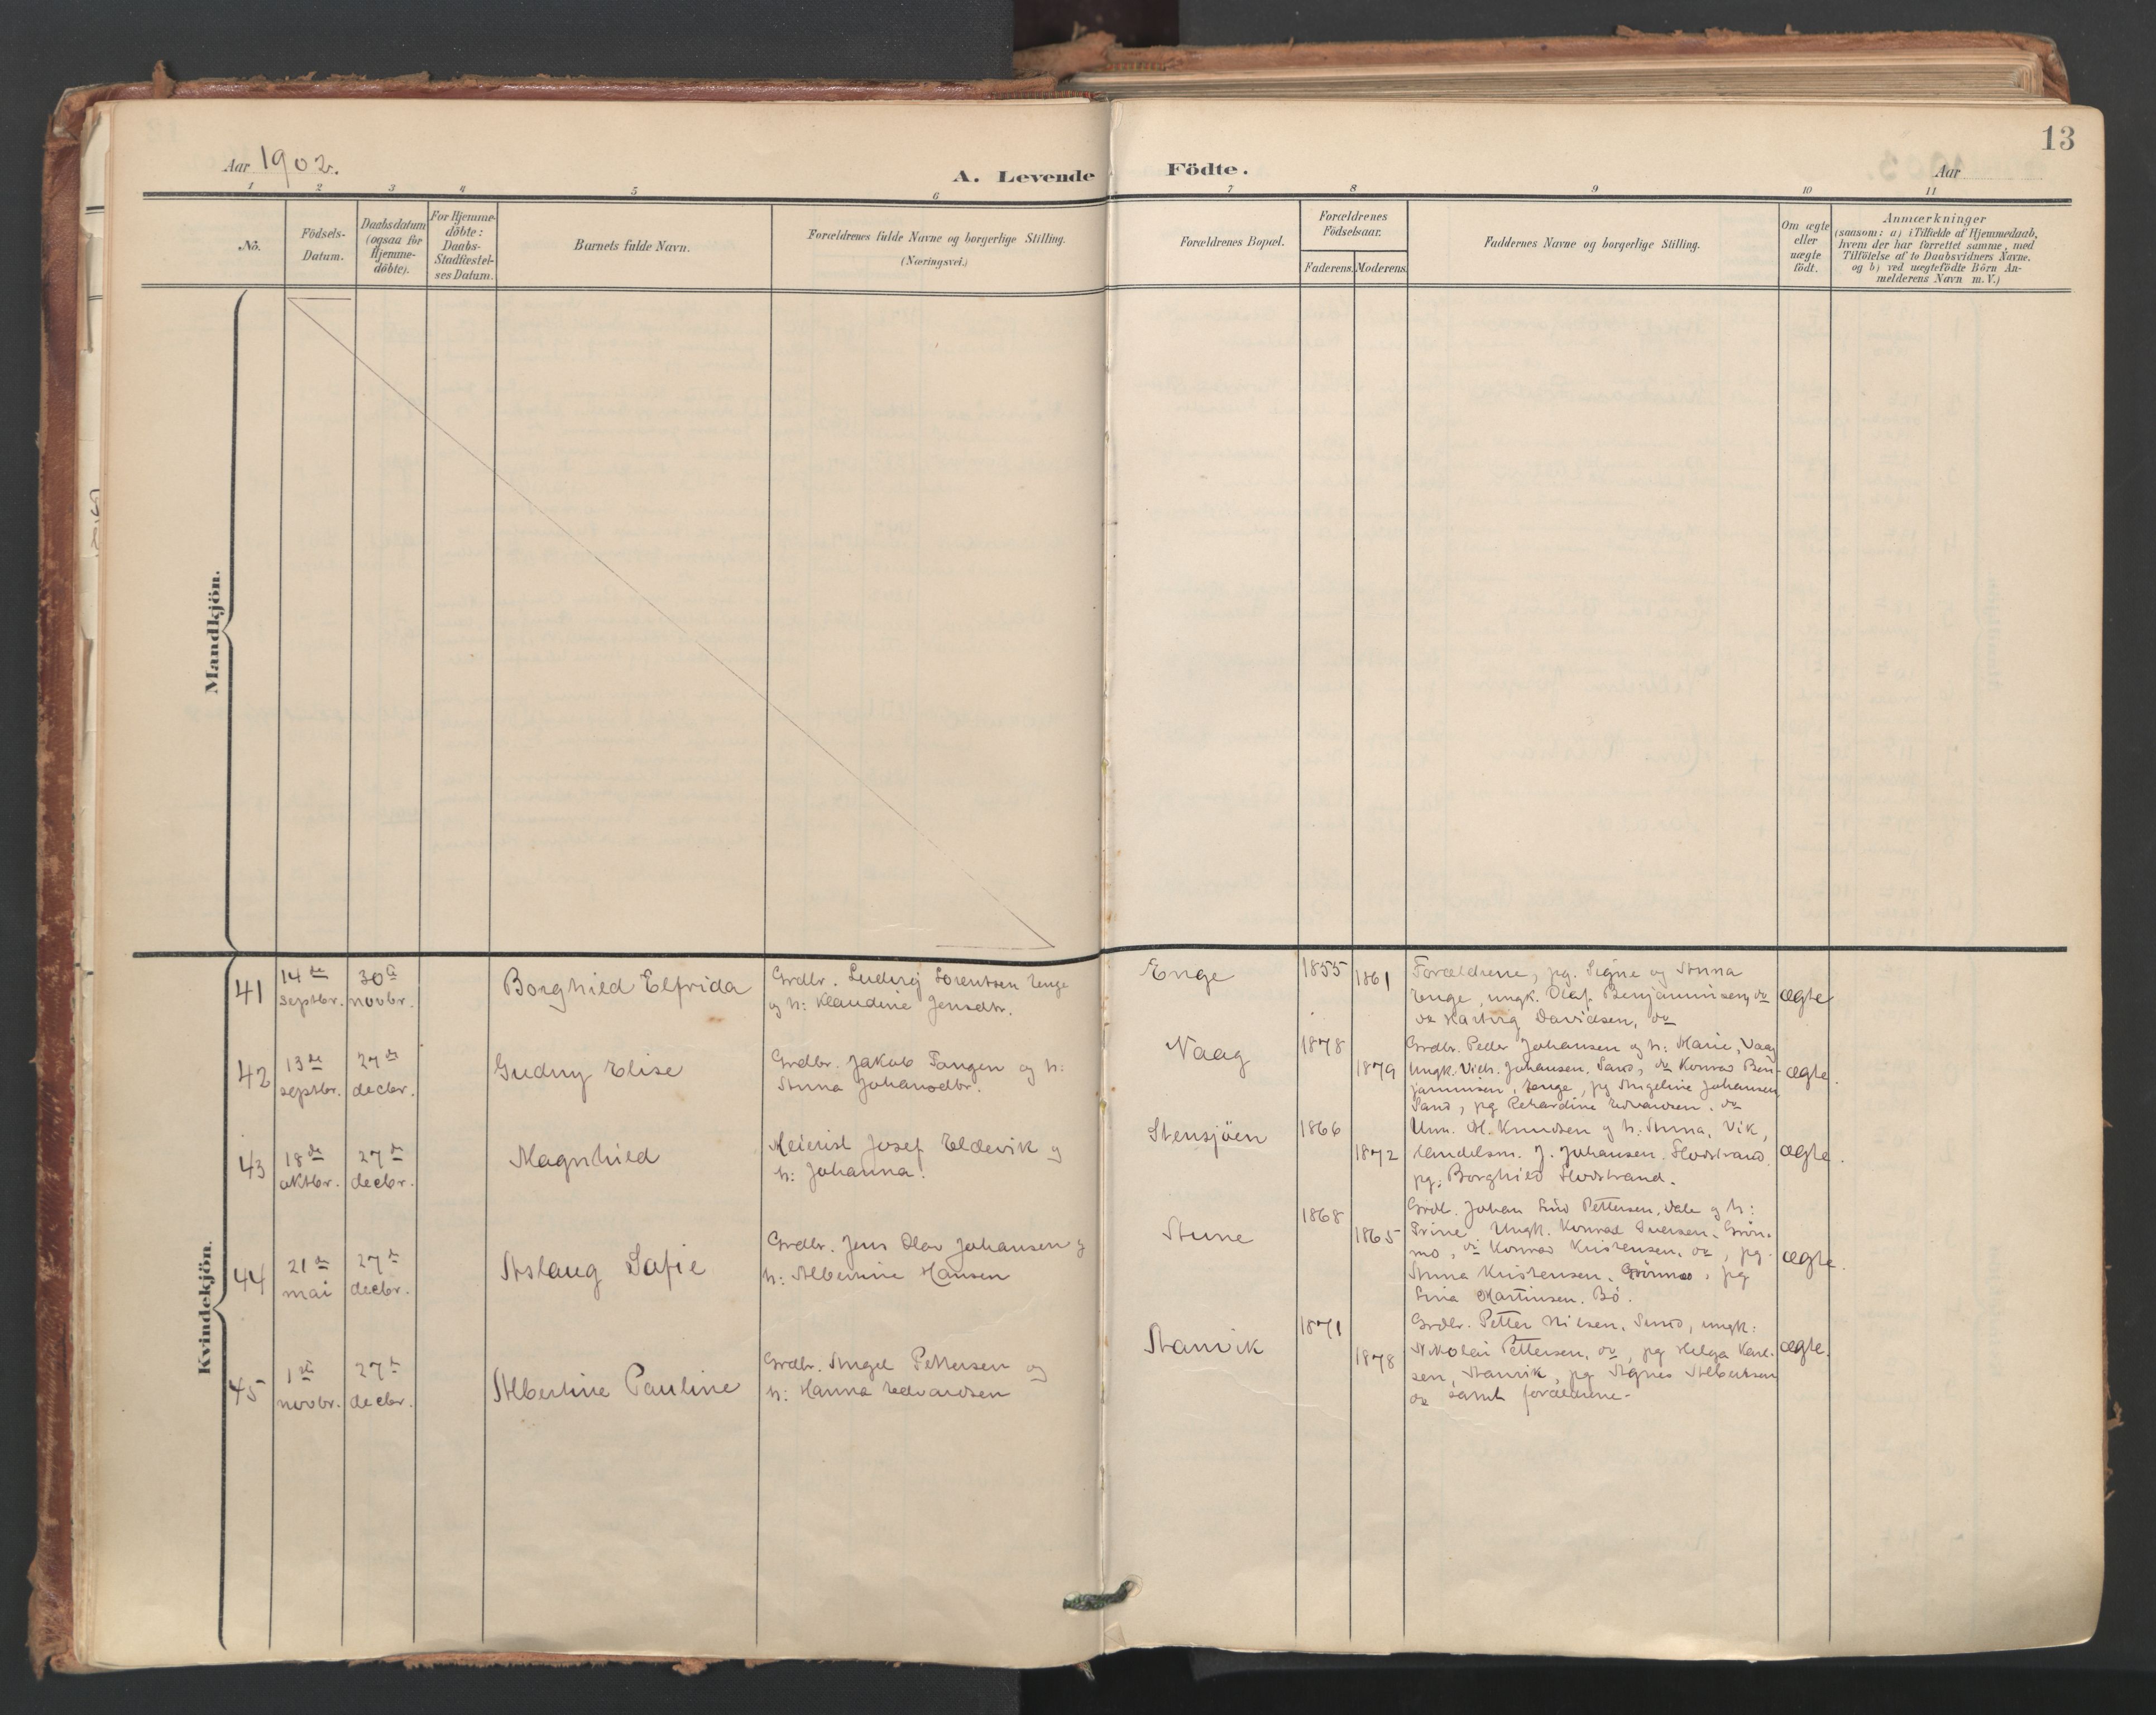 13
Aar 1902.
A. Levende Födte.
Aar
1 2 3 4 5 6 7 8 9 10 11
No.
Födsels-
Datum.
Daabsdatum
(ogsaa for
Hjemme-
döbte).
For Hjemme-
döbte:
Daabs-
Stadfæstel-
ses Datum.
Barnets fulde Navn.
Forældrenes fulde Navne og borgerlige Stilling.
(Næringsvei.)
Forældrenes Bopæl.
Forældrenes
Födselsaar.
Faderens. Moderens.
Faddernes Navne og borgerlige Stilling.
Om ægte
eller
uægte
födt.
Anmærkninger
(saasom: a) i Tilfælde af Hjemmedaab,
hvem der har forrettet samme, med
Tilföielse af to Daabsvidners Navne.
og b) ved uægtefödte Börn An-
melderens Navn m. V.)
Mandkjön.
Kvindekjön.
41
14de
septbr.
30te
novbr.
Borghild Elfrida
Grdbr. Ludvig Sorentsen Enge
og h: Klaudine Jensdtr.
Enge
1855
1861
Forældrene, pg. Signe og Anna
Enge, ungk. Olaf Benjaminsen, do
do Hartvig Davidsen, do
ægte
42
13de
septbr.
27de
decbr.
Gudny Elise
Grdbr. Jakob Tangen og h:
Anna Johansdtr.
Vaag
1878
1879
Grdbr. Peder Johansen og h: Marie, Vaag
Ungk. Vich. Johansen, Sand, do Konrad Ben-
jaminsen, Enge, pg Angeline Johansen,
Sand, pg Rehardine Edvardsen. do
ægte.
43
18de
oktbr.
27de
decbr.
Magnhild
Meierist Josef Eldevik og
h: Johanna.
Stensjöen
1866
1872
Um. M. Knudsen og h: Anna, Vik,
Handelsm. J. Johansen, Flodstrand,
pg. Borghild Flodstrand.
ægte.
44
21de
mai
27de
decbr.
Aslaug Sofie
Grdbr. Jens Olav Johansen og
h: Albertine Hansen
Aune
1868
1865
Grdb. Johan Lind Pettersen, Dale og h:
Trine, Ungk. Konrad Iversen, Grön-
mo, do Konrad Kristensen, do, pg.
Anna Kristensen, Grönmo, pg
Lina Martinsen. Bö.
ægte.
45
1ste
novbr.
27de
decbr.
Albertine Pauline
Grdbr. Angel Pettersen og
h: Hanna Edvardsen
Stamvik
1871
1878
Grdbr. Petter Nilsen, Sund, ungk:
Nikolai Pettersen, do, pg Helga Karl-
sen, Stamvik, pg Agnes Albertsen
do samt forældrene.
ægte.